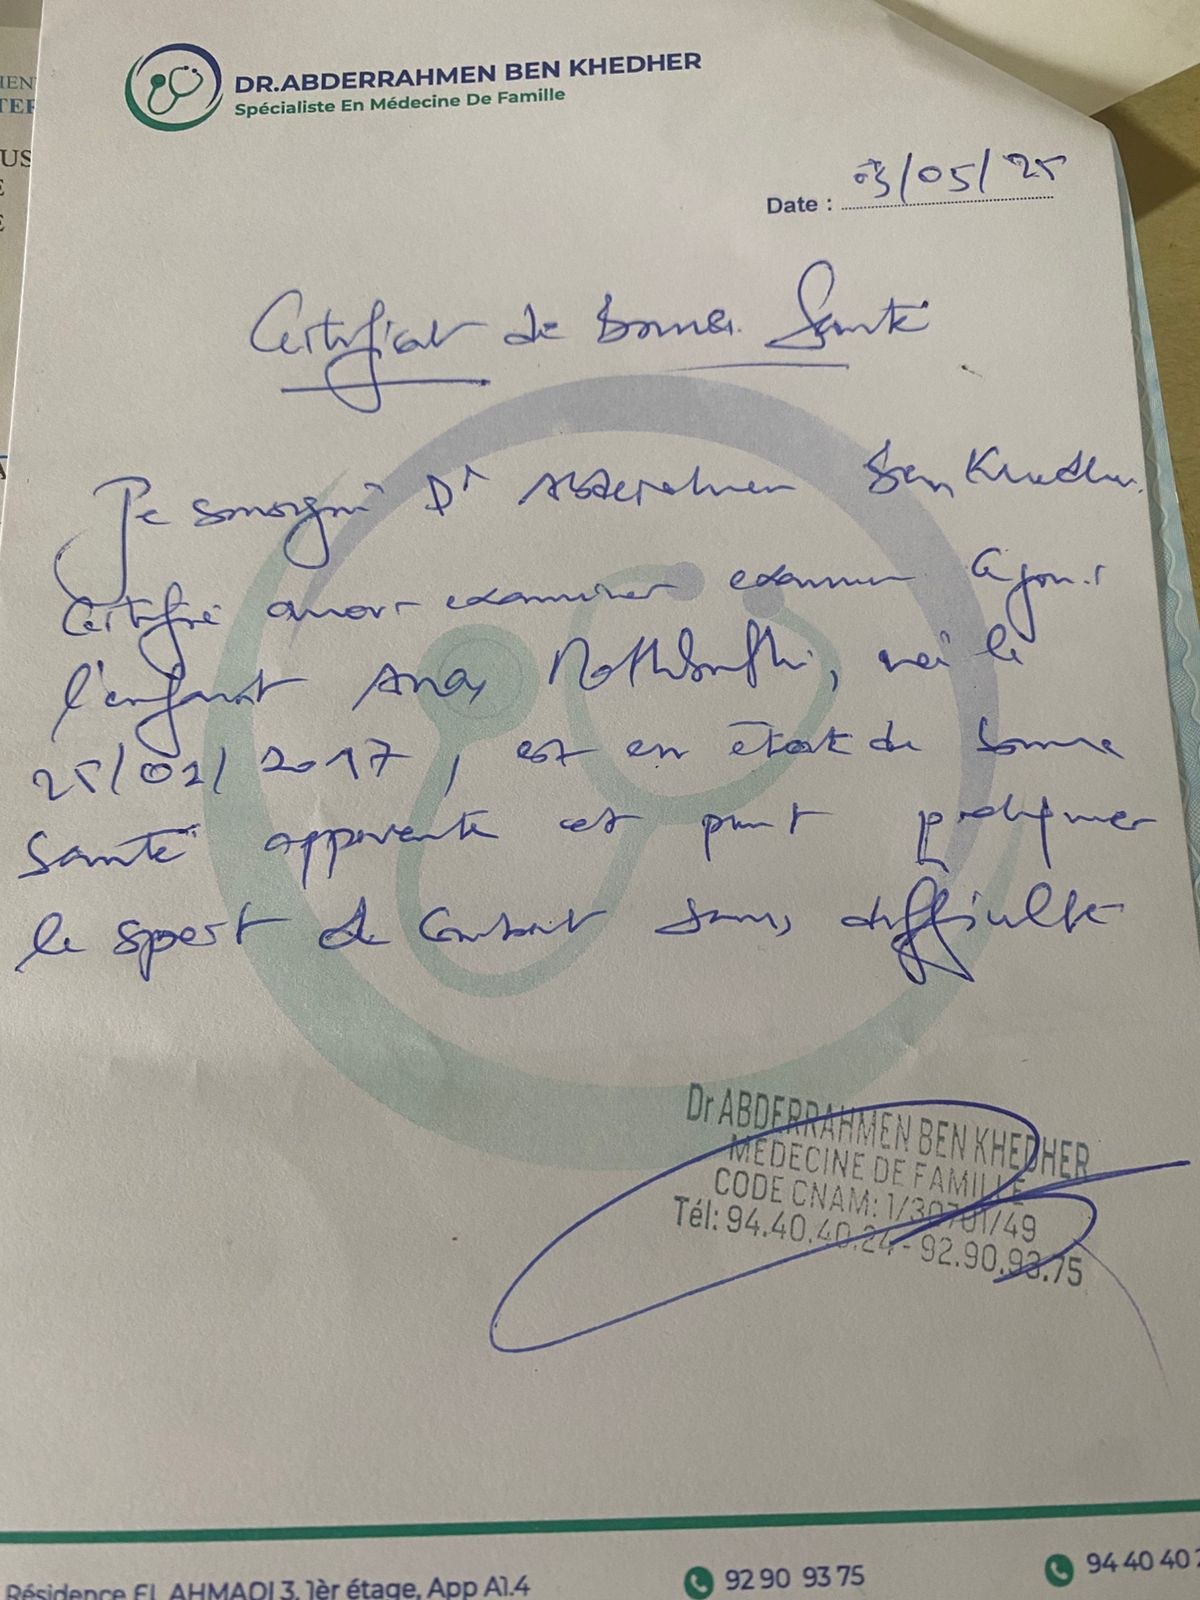 DR.ABDERRAHMEN BEN KHEDHER
Spécialiste En Médecine De Famille
Date : 03/05/25
Certificat de bonne Santé
Je soussigné Dr Abderrahmen Ben Khedher
Certifie avoir examiner examiner ce jour
l'enfant Anas, né le
25/02/2017, est en état de bonne
Santé apparente et peut pratiquer
le sport de Combat sans difficulté
Dr ABDERRAHMEN BEN KHEDHER
MEDECINE DE FAMILLE
CODE CNAM: 1/30701/49
Tél: 94.40.40.24 - 92.90.93.75
Résidence EL AHMADI 3, 1èr étage, App A1.4
92 90 93 75
94 40 40